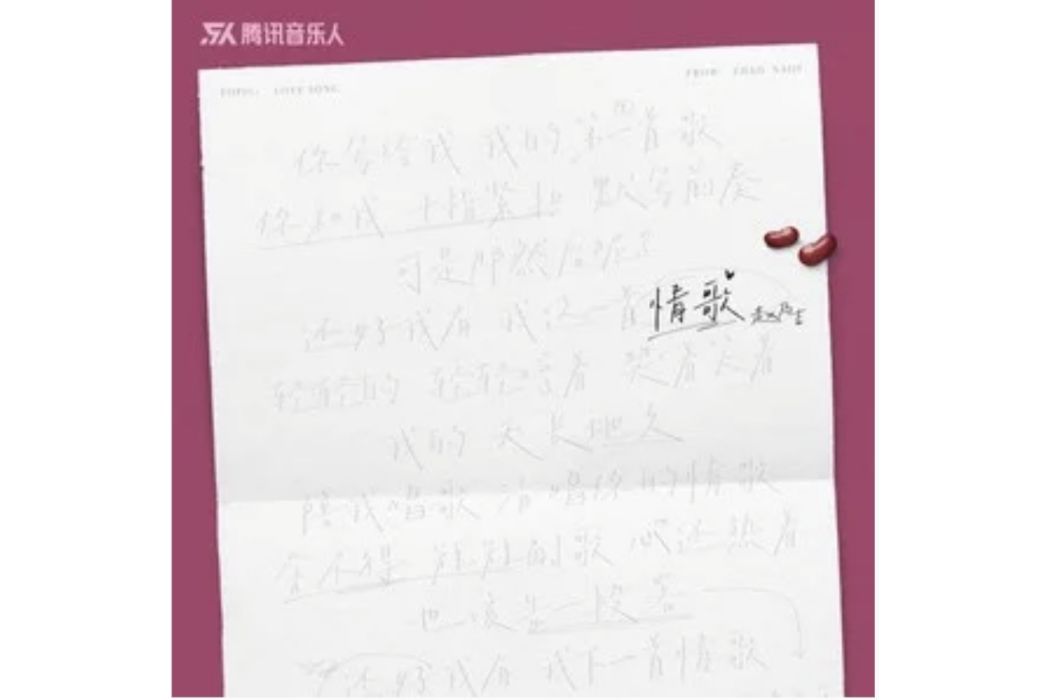 腾讯音乐人
TOPIC: LOVE SONG
FROM: ZHAO NAIJI
你写给我 我的第一首歌
你和我 十指紧扣 默写前奏
可是那然后呢?
还好我有 我这一首
情歌 赵乃吉
轻轻的 轻轻哼着 哭着笑着
我的 天长地久
陪我唱歌 清唱你的情歌
舍不得 短短副歌 心还热着
也该告一段落
还好我有 我下一首情歌